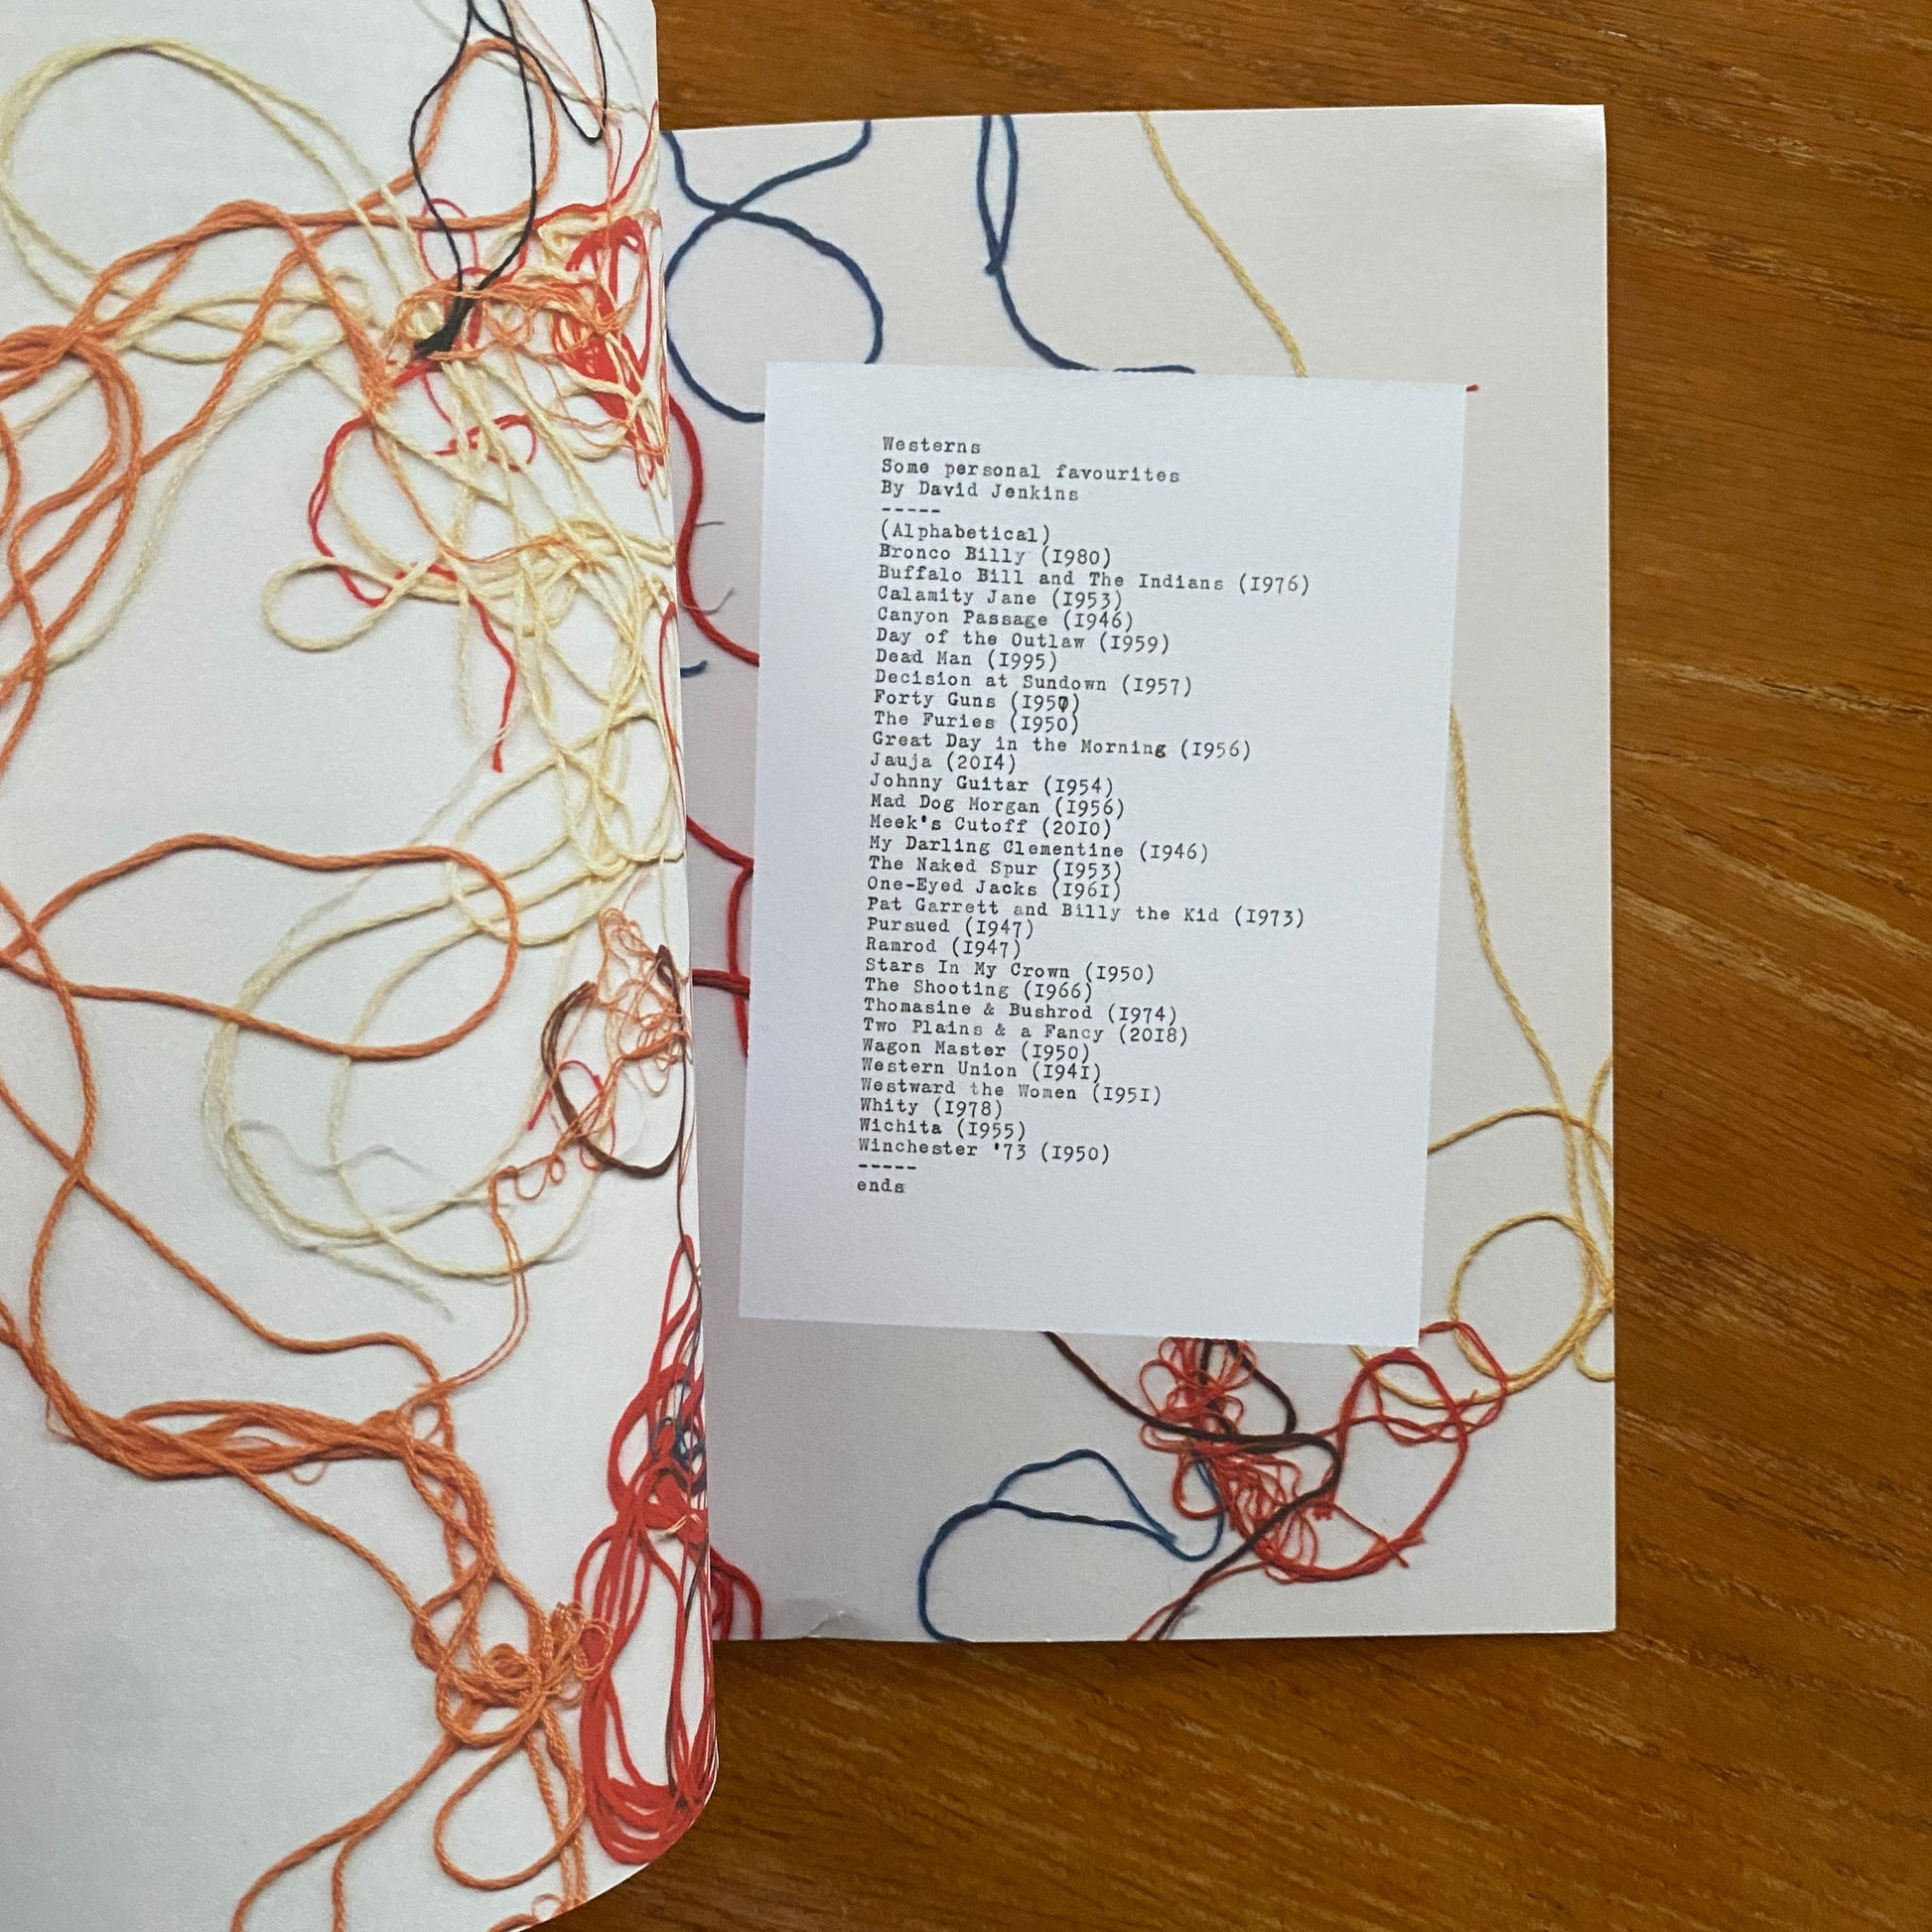 Westerns
Some personal favourites
By David Jenkins
-----
(Alphabetical)
Bronco Billy (1980)
Buffalo Bill and The Indians (1976)
Calamity Jane (1953)
Canyon Passage (1946)
Day of the Outlaw (1959)
Dead Man (1995)
Decision at Sundown (1957)
Forty Guns (1957)
The Furies (1950)
Great Day in the Morning (1956)
Jauja (2014)
Johnny Guitar (1954)
Mad Dog Morgan (1956)
Meek's Cutoff (2010)
My Darling Clementine (1946)
The Naked Spur (1953)
One-Eyed Jacks (1961)
Pat Garrett and Billy the Kid (1973)
Pursued (1947)
Ramrod (1947)
Stars In My Crown (1950)
The Shooting (1966)
Thomasine & Bushrod (1974)
Two Plains & a Fancy (2018)
Wagon Master (1950)
Western Union (1941)
Westward the Women (1951)
Whity (1978)
Wichita (1955)
Winchester '73 (1950)
-----
ends